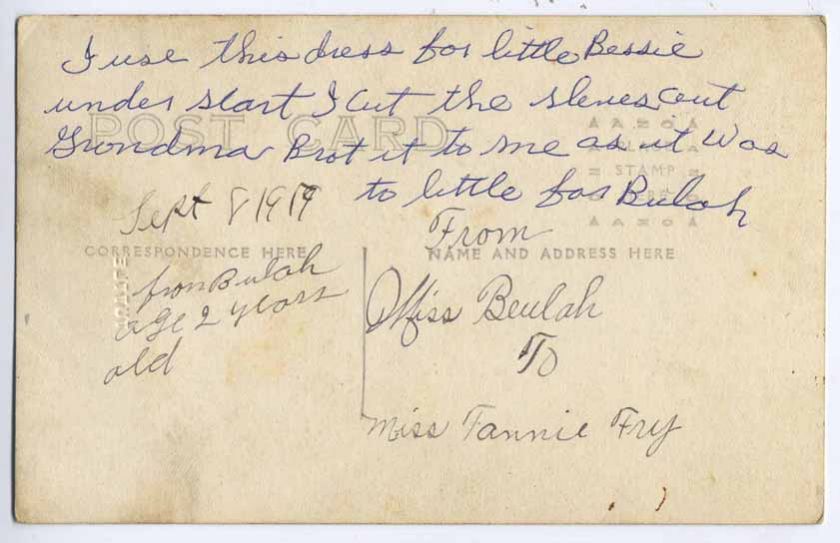 I use this dress for little Bessie
under scart I cut the sleves out
POST CARD
Grondma Brot it to me as it was
to little for Bulah
AZO
STAMP
AZO
Sept 8 1919
From
CORRESPONDENCE HERE
NAME AND ADDRESS HERE
from Bulah
age 2 years
old
Miss Beulah
To
Miss Fannie Fry